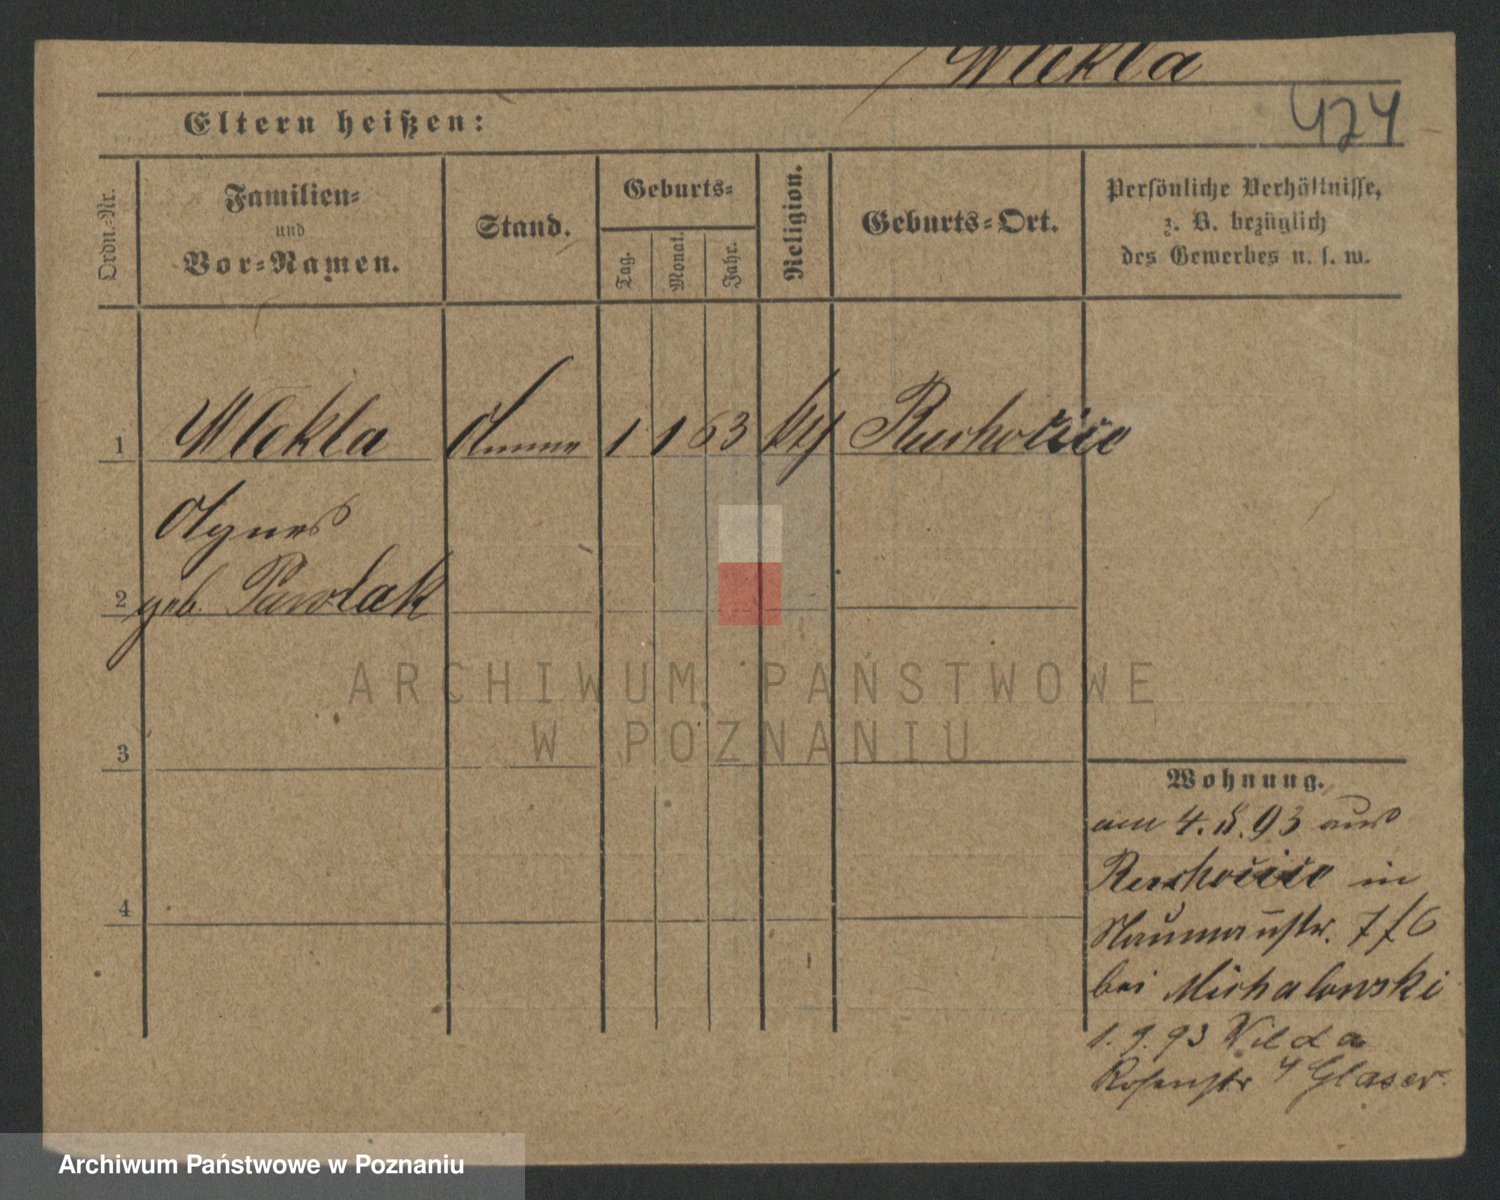 Wlekla
Eltern heißen:
424
Ordn.-Nr.
Familien-
und
Vor-Namen.
Stand.
Geburts-
Tag.
Monat.
Jahr.
Religion.
Geburts-Ort.
Persönliche Verhältnisse,
z. B. bezüglich
des Gewerbes u. s. w.
1 Wlekla Amme 1 1 63 Ruchocice
Agnes
2 geb. Pawlak
ARCHIWUM PAŃSTWOWE
W POZNANIU
3
Wohnung.
am 4. 8. 93 aus
Ruchocice in
4
Naumannstr. 7/6
bei Michalowski
1. 9. 93 Wilda
Rosenstr 4 Glaser
Archiwum Państwowe w Poznaniu